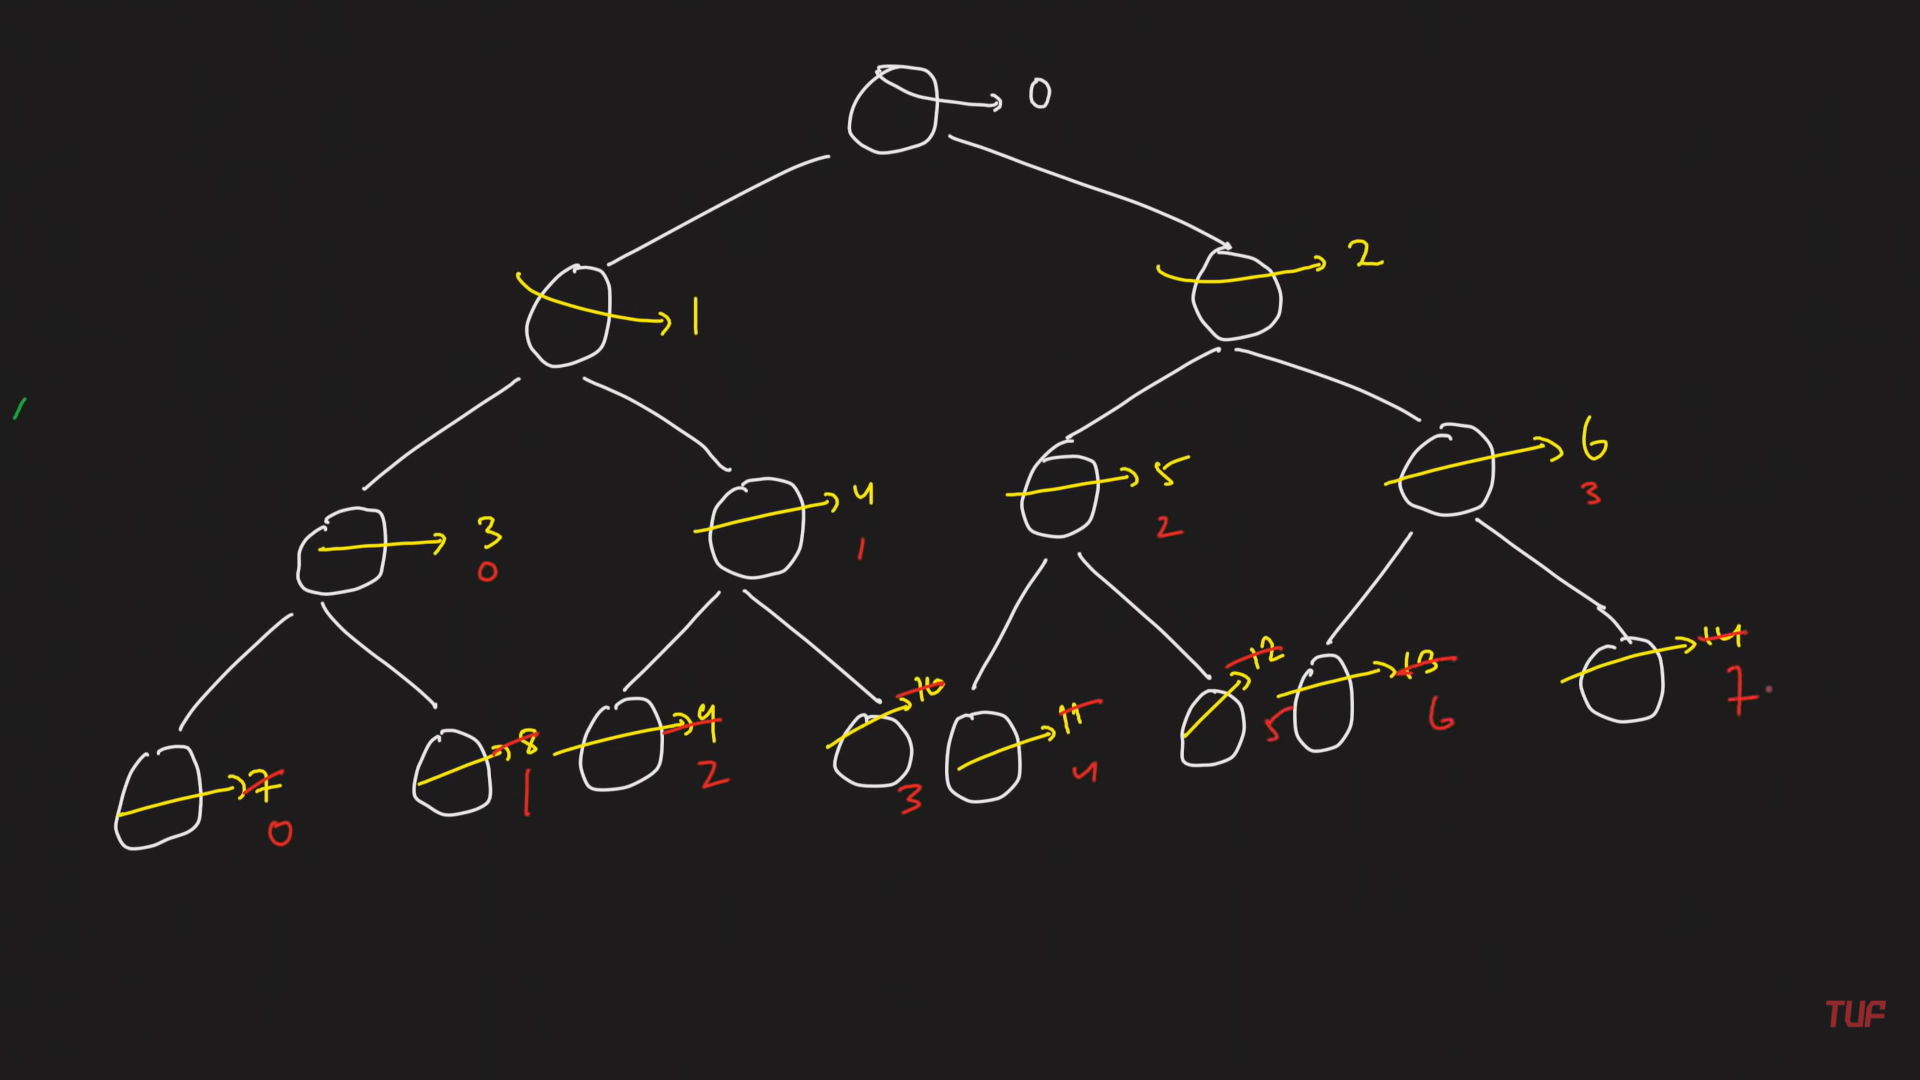 0
1
2
3
0
4
1
5
2
6
3
7
0
8
1
9
2
10
3
11
4
12
5
13
6
14
7
TUF